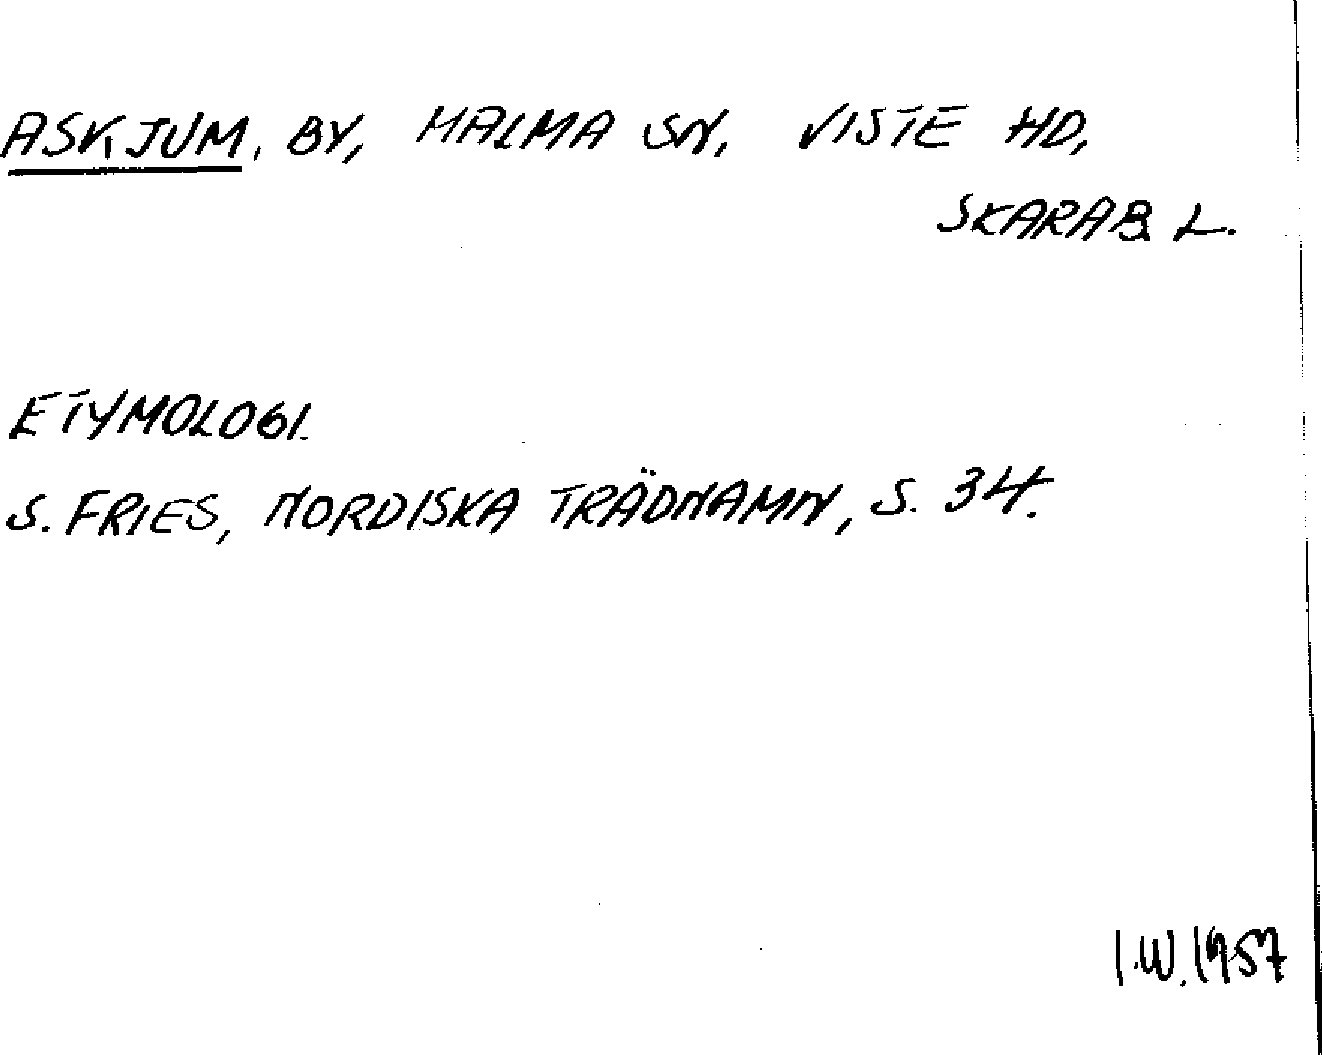 ASKJUM, BY, MALMA SN, VISTE HD,
SKARAB. L.
ETYMOLOGI.
S. FRIES, NORDISKA TRÄDNAMN, S. 34.
I.W. 1957